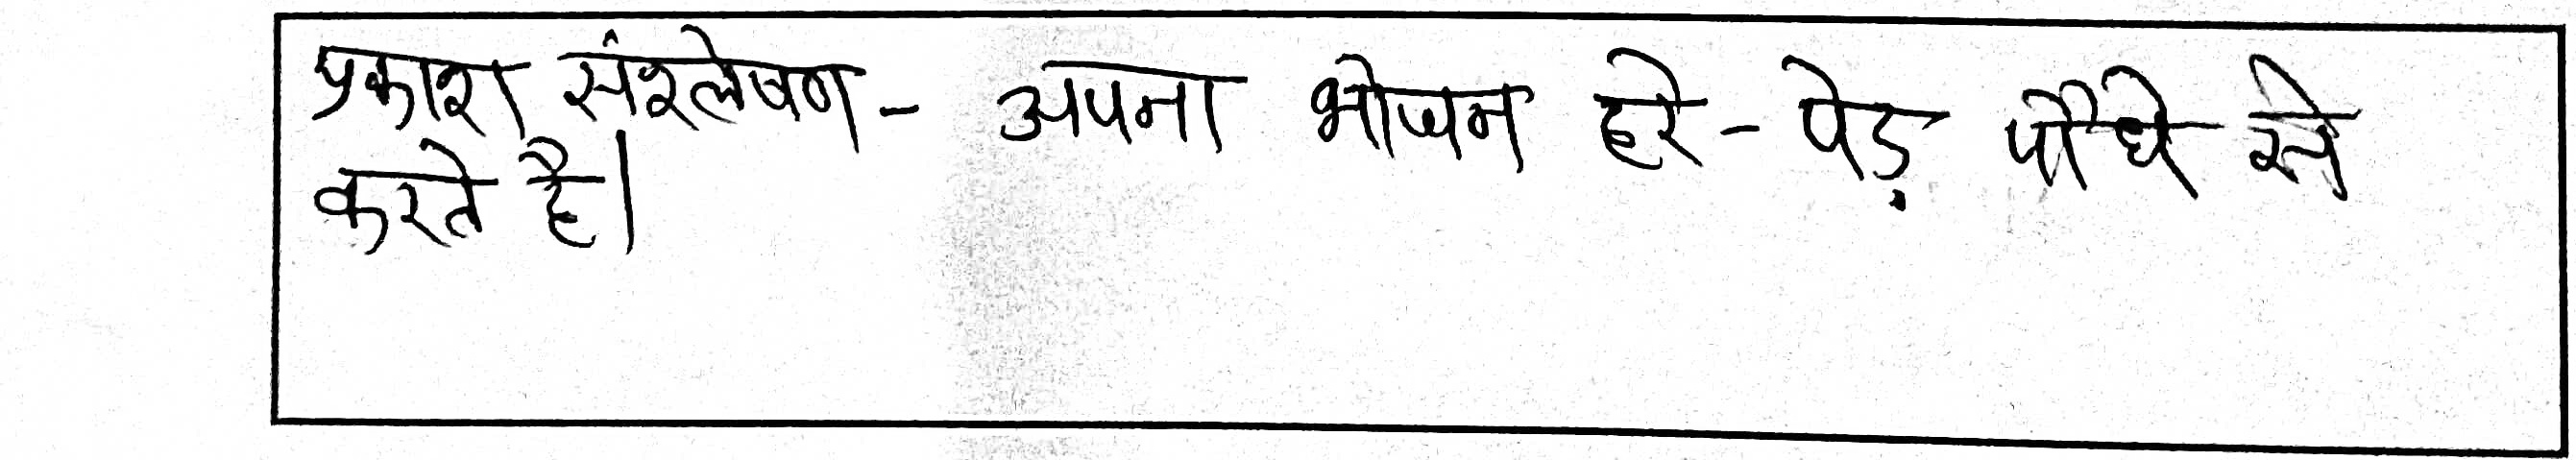 प्रकाश संश्लेषण - अपना भोजन हरे - पेड़ पौधे से
करते है।